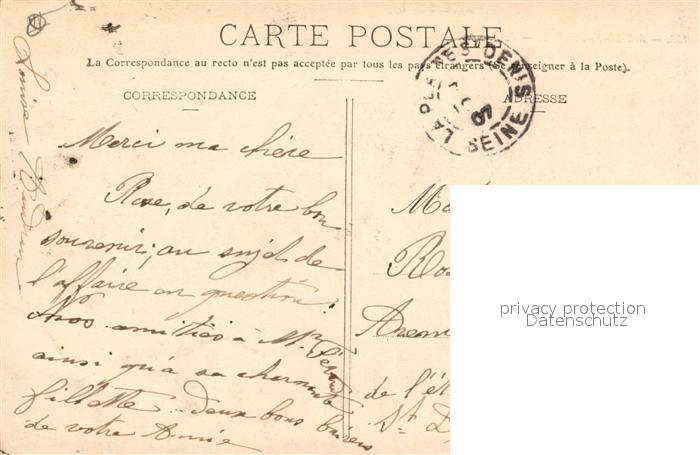 CARTE POSTALE
La Correspondance au recto n'est pas acceptée par tous les pays étrangers (Se renseigner à la Poste).
CORRESPONDANCE
ADRESSE
LA PLAINE ST DENIS
07
SEINE
Merci ma chère
Rose, de votre bon
souvenir; au sujet de
l'affaire en question!
Nos amitiés à Mr
ainsi qu'à sa charmante
fillette. deux bons baisers
de votre Amie
Louise
Ma
Ros
Aven
de l'ét
St D
privacy protection
Datenschutz